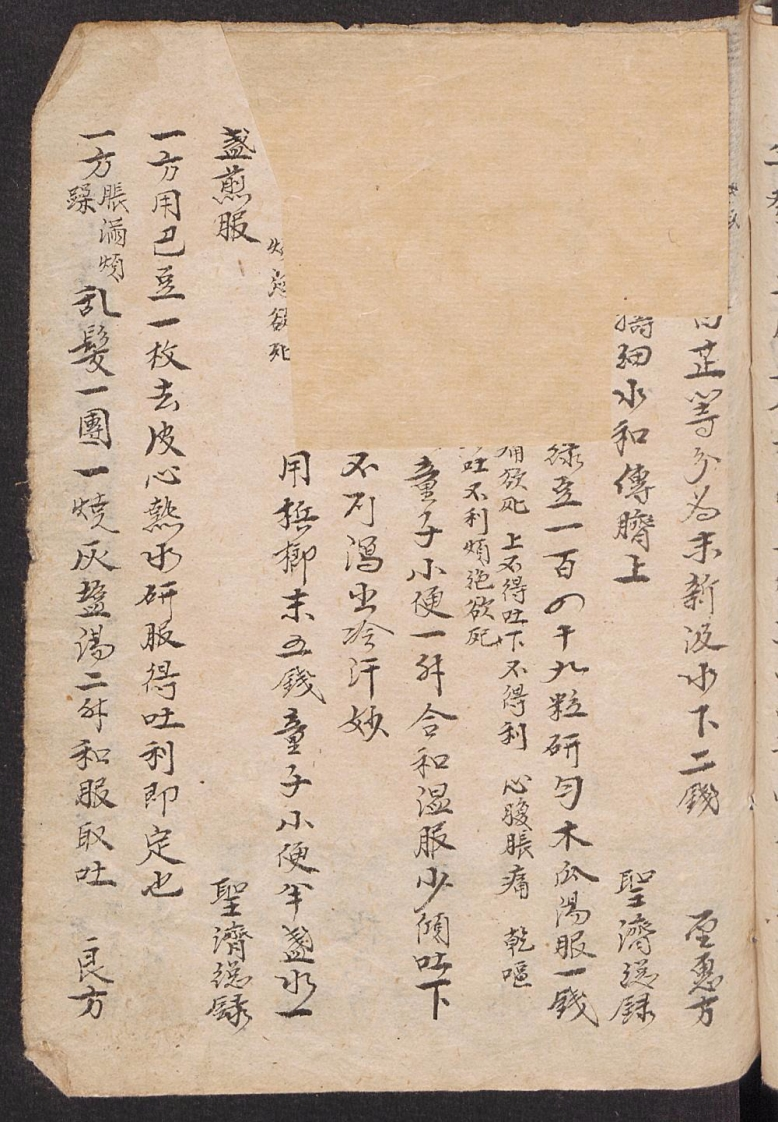 芷等分為末新汲水下二錢 圣惠方
細水和傅臍上 聖濟総録
豆一百四十九粒硏匀木瓜湯服一錢
欲死 上不得吐下不得利 心腹脹痛 乾嘔
吐不利煩絶欲死
童子小便一升合和温服少傾吐下
不利瀉出冷汗妙
用梹榔末五錢童子小便半盞水一
欲死
盞煎服 聖濟総録
一方用巴豆一枚去皮心熱水硏服得吐利即定也
一方脹滿煩躁乱髮一團一燒灰塩湯二升和服取吐 良方